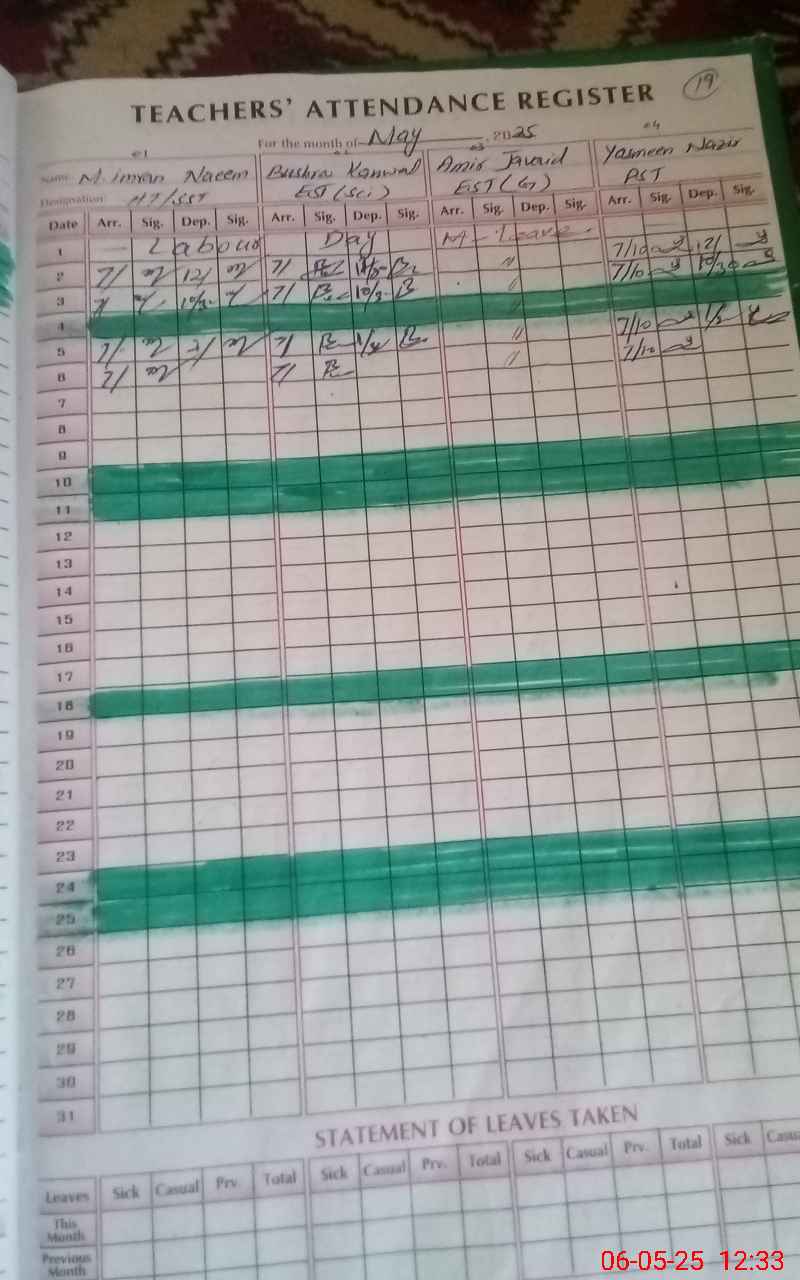 19
TEACHERS' ATTENDANCE REGISTER
For the month of May 2025
Name M. imran Naeem Bushra Kanwal Amir Javaid Yasmeen Nazir
Designation HT/SST EST (Sci) EST (G) PST
Date Arr. Sig. Dep. Sig. Arr. Sig. Dep. Sig. Arr. Sig. Dep. Sig. Arr. Sig. Dep. Sig.
1 Labour Day M-Leave
2 7/ 12/ 7/ " 7/10 12/
3 7/ 10/30 " 7/10 10/30
4
5 7/ 7/ " 7/10
6 7/ 7/ " 7/10
7
8
9
10
11
12
13
14
15
16
17
18
19
20
21
22
23
24
25
26
27
28
29
30
31
STATEMENT OF LEAVES TAKEN
Leaves Sick Casual Prv. Total Sick Casual Prv. Total Sick Casual Prv. Total Sick
This Month
Previous Month
06-05-25 12:33